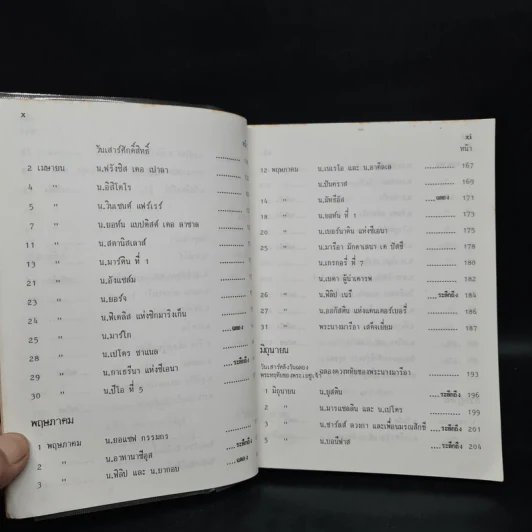 x
วันเสาร์ศักดิ์สิทธิ์
2 เมษายน น.ฟรังซิส เดอ เปาลา ........
4 " น.อิสิโดโร ........
5 " น.วินเซนต์ แฟร์เรร์ ........
7 " น.ยอห์น แบปติสต์ เดอ ลาซาล ........
11 " น.สตานิสเลาส์ ........
13 " น.มาร์ติน ที่ 1 ........
21 " น.อังแซล์ม ........
23 " น.ยอร์จ ........
24 " น.ฟิเดลิส แห่งซิกมาริงเก็น ........
25 " น.มาร์โก ....ฉลอง
28 " น.เปโตร ชาแนล ........
29 " น.กาเธรีนา แห่งซีเอนา ....ระลึกถึง
30 " น.ปีโอ ที่ 5 ........
พฤษภาคม
1 พฤษภาคม น.ยอแซฟ กรรมกร ........
2 " น.อาทานาซีอุส ....ระลึกถึง
3 " น.ฟิลิป และ น.ยากอบ ....ฉลอง
xi
หน้า
12 พฤษภาคม น.เนเรโอ และ น.อาคิลเล ........ 167
น.ปันคราส ........ 169
14 " น.มัทธีอัส ....ฉลอง 171
18 " น.ยอห์น ที่ 1 ........ 173
20 " น.เบอร์นาดิน แห่งซีเอนา ........ 175
25 " น.มารีอา มักดาเลนา เด ปัสซี ........
น.เกรกอรี่ ที่ 7 ........
น.เบดา ผู้น่าเคารพ ........ 180
26 " น.ฟิลิป เนรี ....ระลึกถึง 184
27 " น.ออกัสติน แห่งแคนเตอร์เบอรี่ ........ 186
31 " พระนางมารีอา เสด็จเยี่ยม ........ 187
มิถุนายน
วันเสาร์หลังวันฉลอง
พระหฤทัยของพระเยซูเจ้า ฉลองดวงหทัยของพระนางมารีอา ........ 193
1 มิถุนายน น.ยุสติน ....ระลึกถึง 196
2 " น.มารแชลลิน และ น.เปโตร ........ 199
3 " น.ชาร์ลส์ ลวงกา และเพื่อนมรณสักขี ....ระลึกถึง 201
5 " น.บอนีฟาส ....ระลึกถึง 204